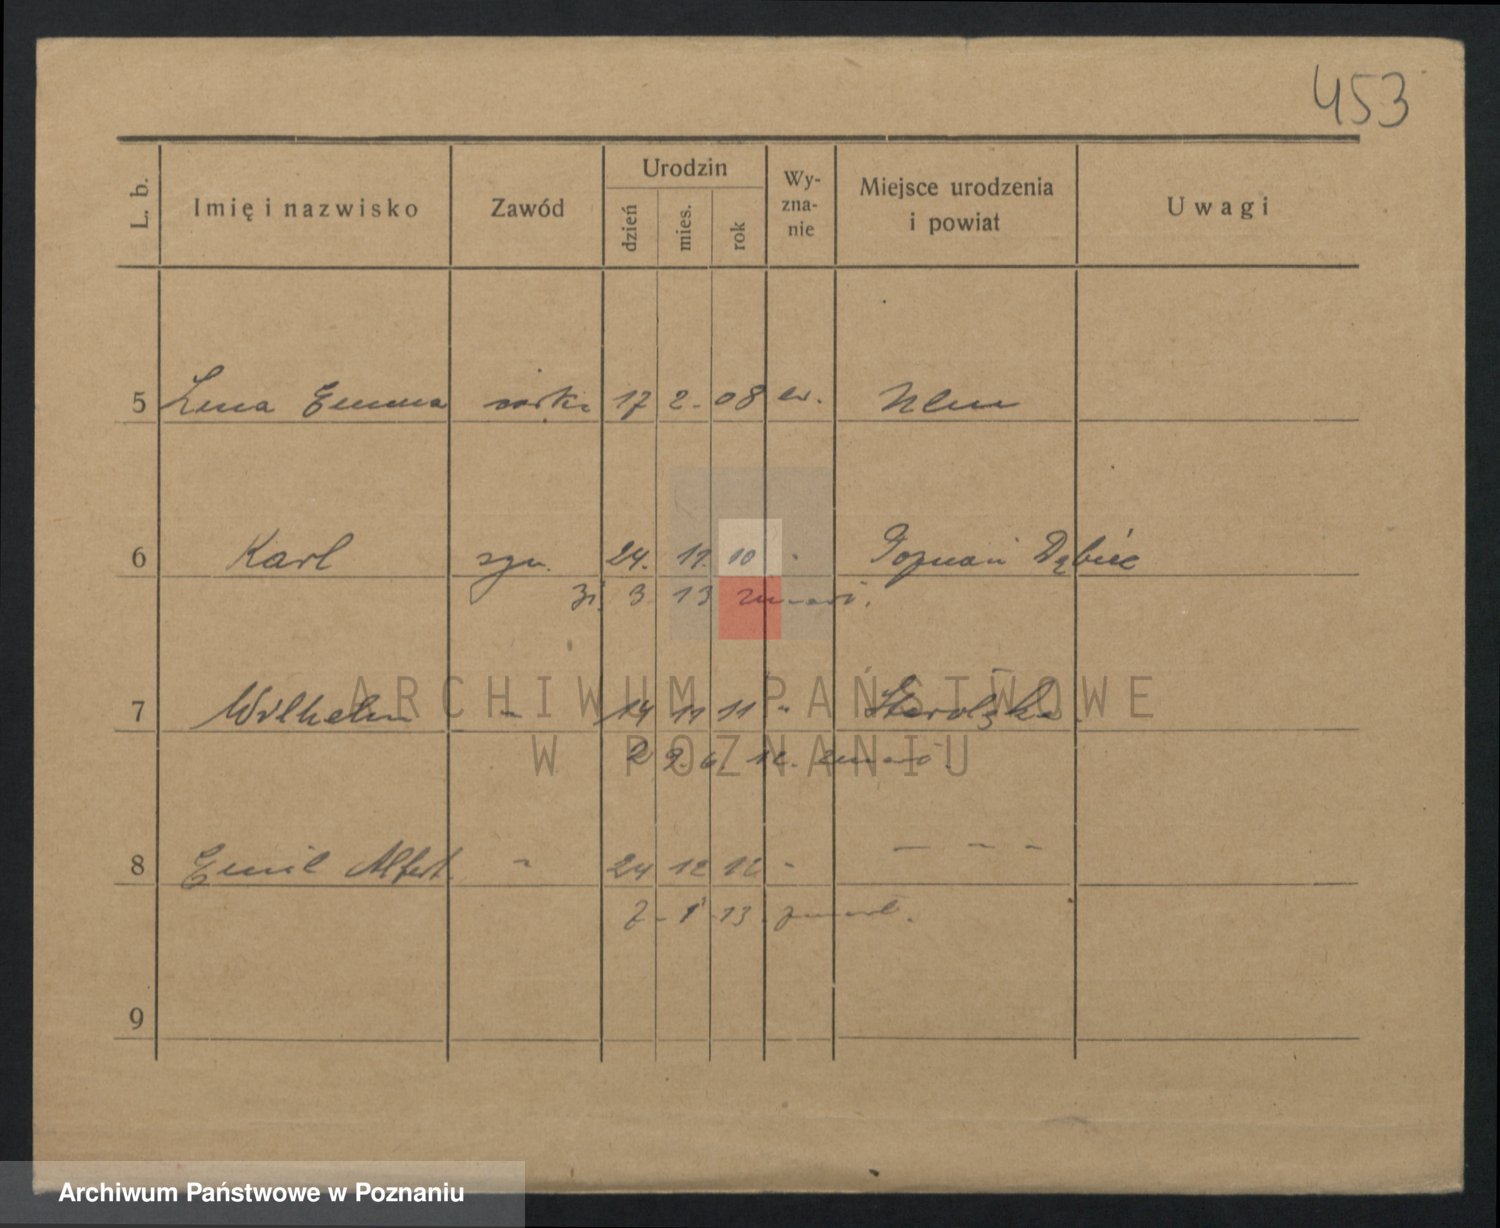 453
L. b. Imię i nazwisko Zawód Urodzin Wy-zna-nie Miejsce urodzenia i powiat Uwagi
dzień mies. rok
5 Lina Emma córka 17 2. 08 ew. Ulm
6 Karl syn. 24. 11. 10 Poznań Dębiec
31. 3 13 zmarł.
7 Wilhelm " 14 11 11 "
12. zmarł.
8 Emil Albert " 24 12 12 " – – –
7. 1 13. zmarł.
9
ARCHIWUM PAŃSTWOWE
W POZNANIU
Archiwum Państwowe w Poznaniu